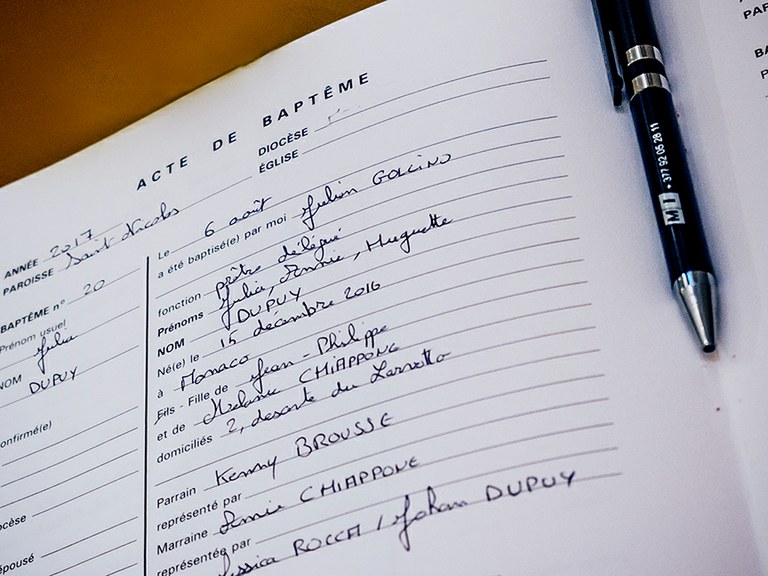 ACTE DE BAPTÊME
DIOCÈSE
ÉGLISE
ANNÉE 2017
PAROISSE Saint Nicolas
BAPTÊME n° 20
Prénom usuel
Julia
NOM
DUPUY
confirmé(e)
Le 6 août
a été baptisé(e) par moi Julien GOLLINO
fonction prêtre délégué
Prénoms Julia, Annie, Huguette
NOM DUPUY
Né(e) le 15 décembre 2016
à Monaco
Fils - Fille de Jean-Philippe
et de Mélanie CHIAPPONE
domiciliés 2, descente du Larvotto
Parrain Kenny BROUSSE
représenté par
Marraine CHIAPPONE
représentée par
ROCCA / Johan DUPUY
MI +377 92 05 28 11